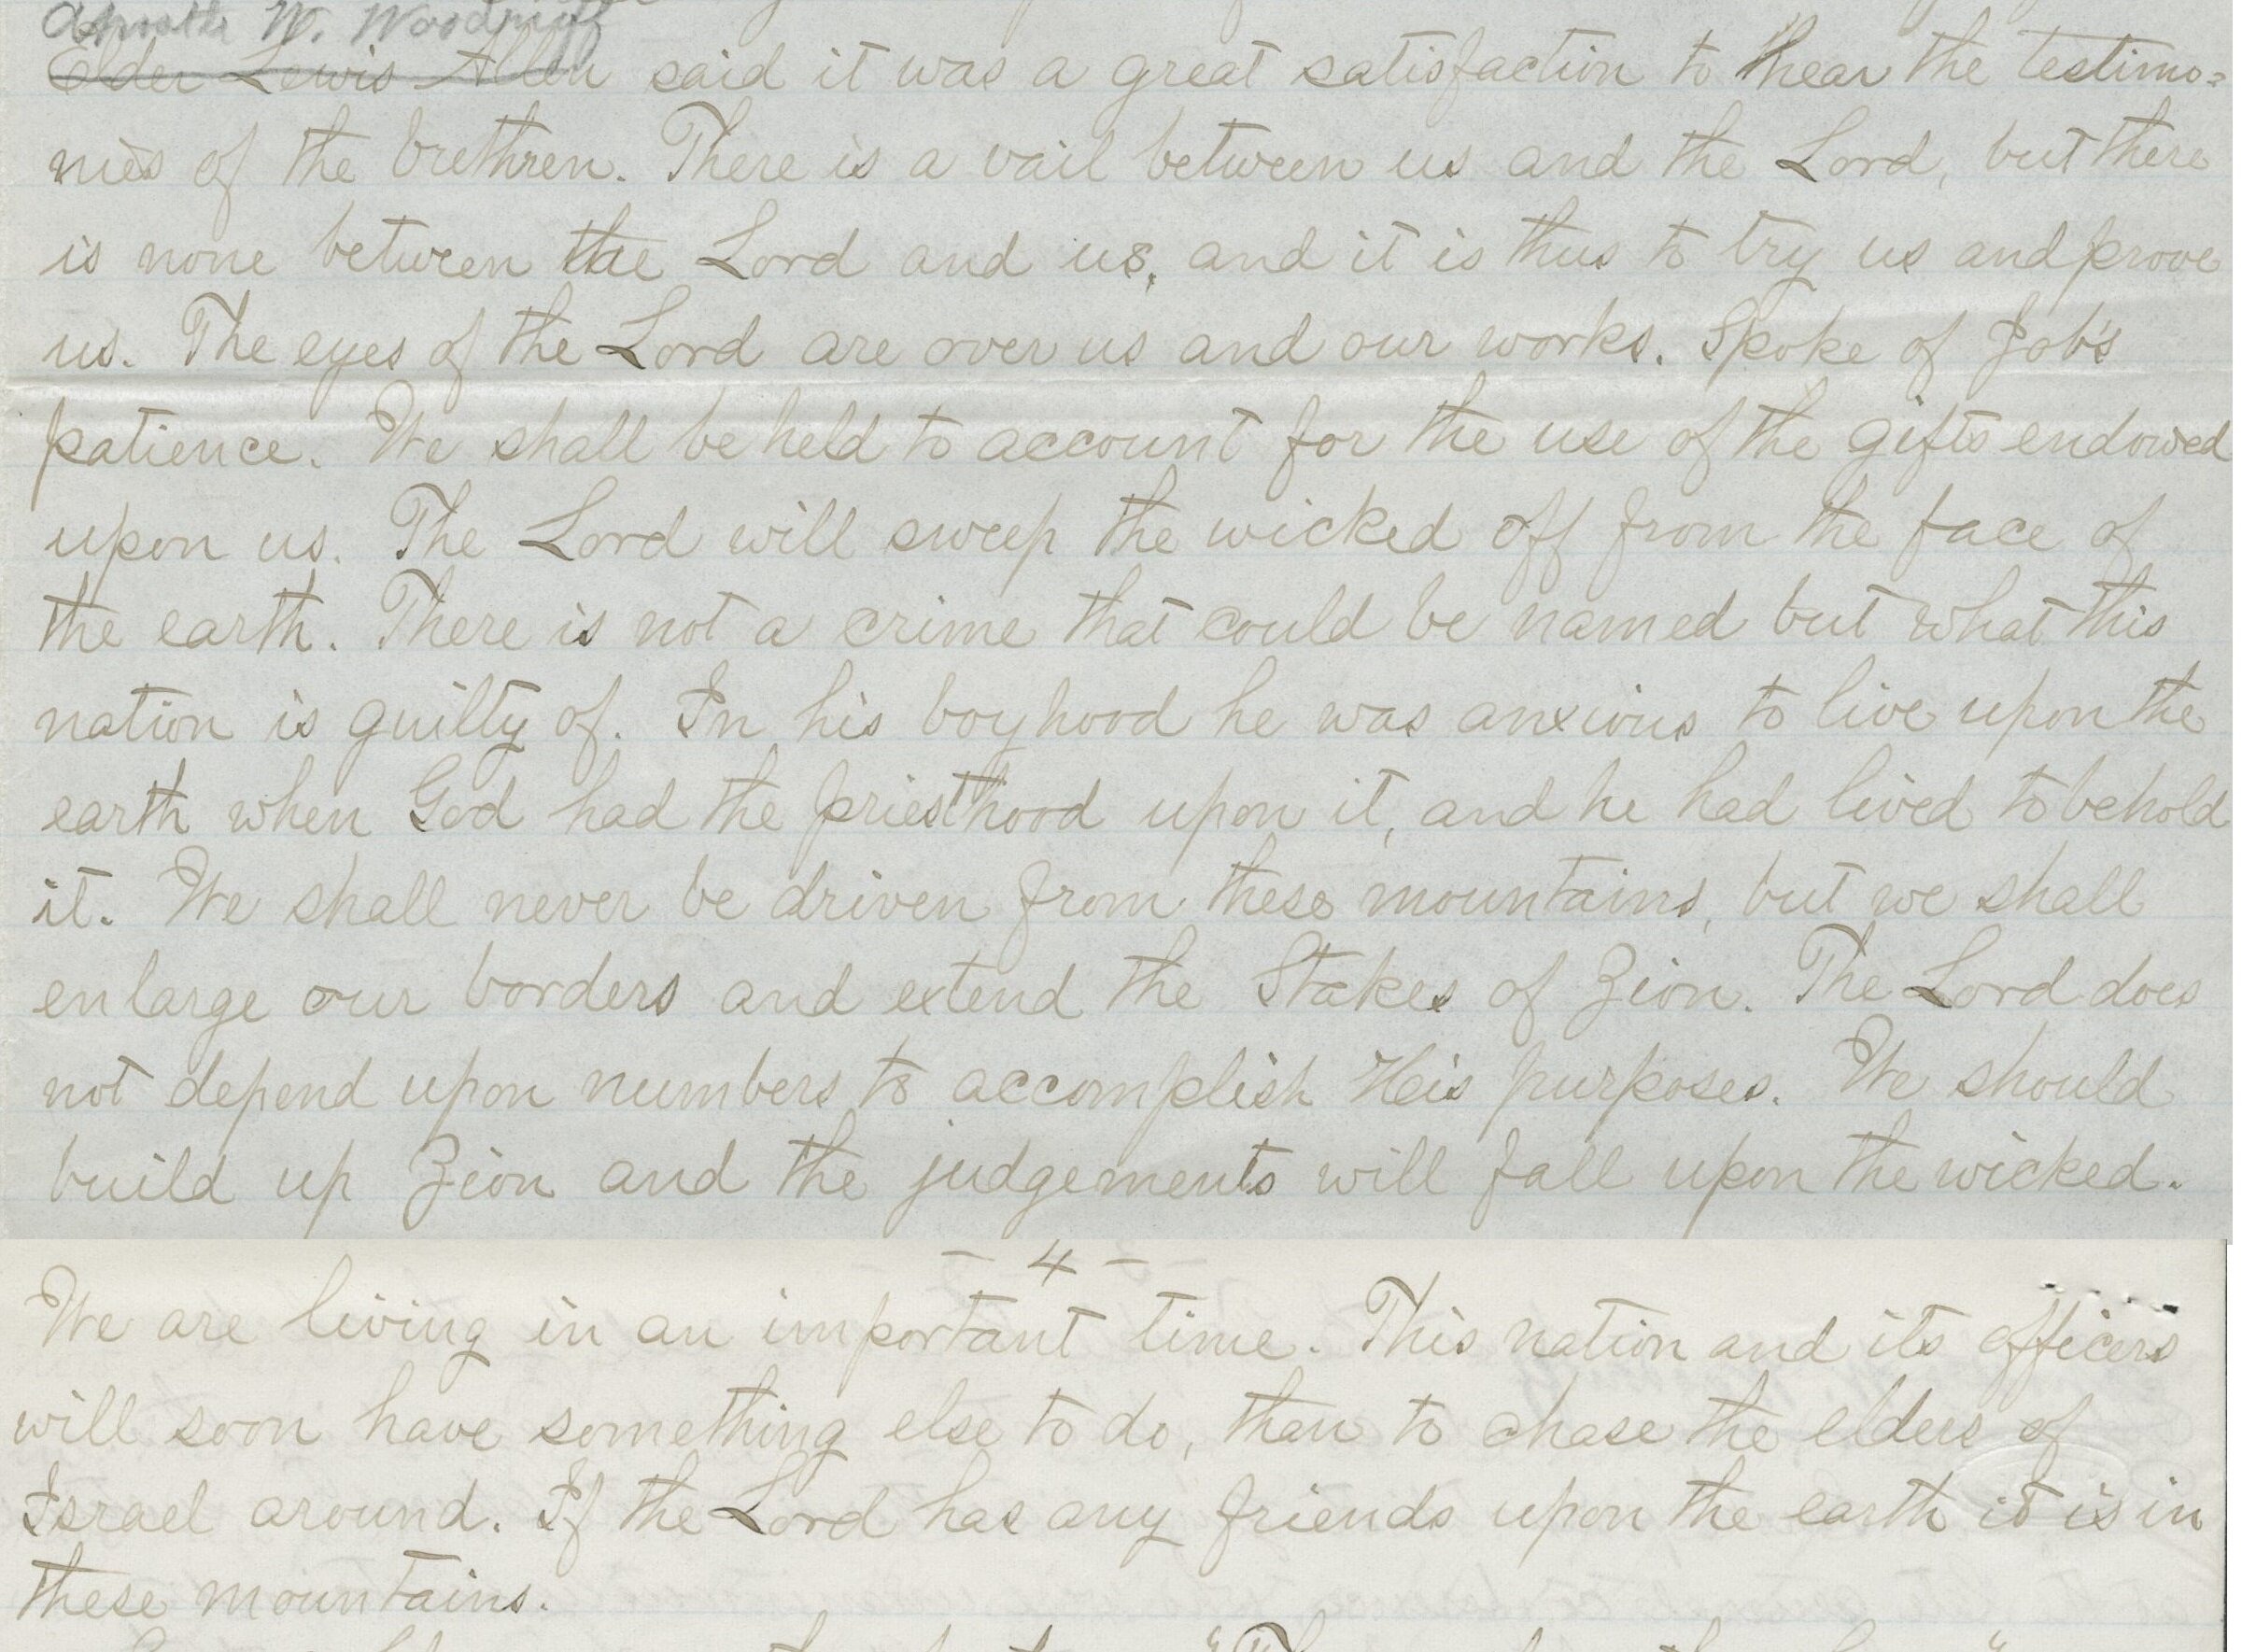 Apostle W. Woodruff
Elder Lewis Allen said it was a great satisfaction to hear the testimo=
nies of the brethren. There is a vail between us and the Lord, but there
is none between the Lord and us, and it is thus to try us and prove
us. The eyes of the Lord are over us and our works. Spoke of Job's
patience. We shall be held to account for the use of the gifts endowed
upon us. The Lord will sweep the wicked off from the face of
the earth. There is not a crime that could be named but what this
nation is guilty of. In his boyhood he was anxious to live upon the
earth when God had the priesthood upon it, and he had lived to behold
it. We shall never be driven from these mountains, but we shall
enlarge our borders and extend the Stakes of Zion. The Lord does
not depend upon numbers to accomplish His purposes. We should
build up Zion and the judgements will fall upon the wicked.
- 4 -
We are living in an important time. This nation and its officers
will soon have something else to do, than to chase the elders of
Israel around. If the Lord has any friends upon the earth it is in
these mountains.